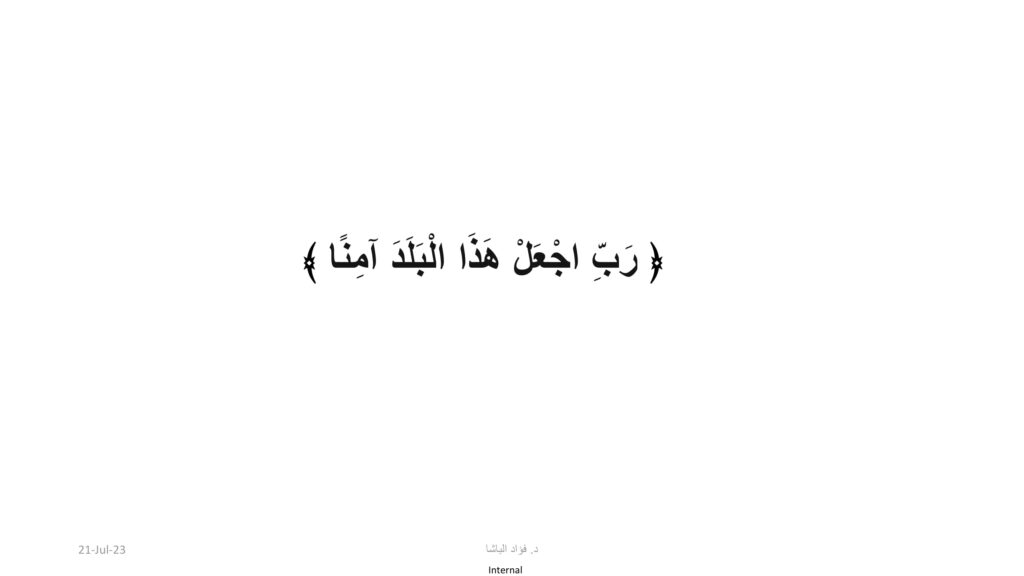 ﴿ رَبِّ اجْعَلْ هَذَا الْبَلَدَ آمِنًا ﴾
21-Jul-23
د. فؤاد الباشا
Internal